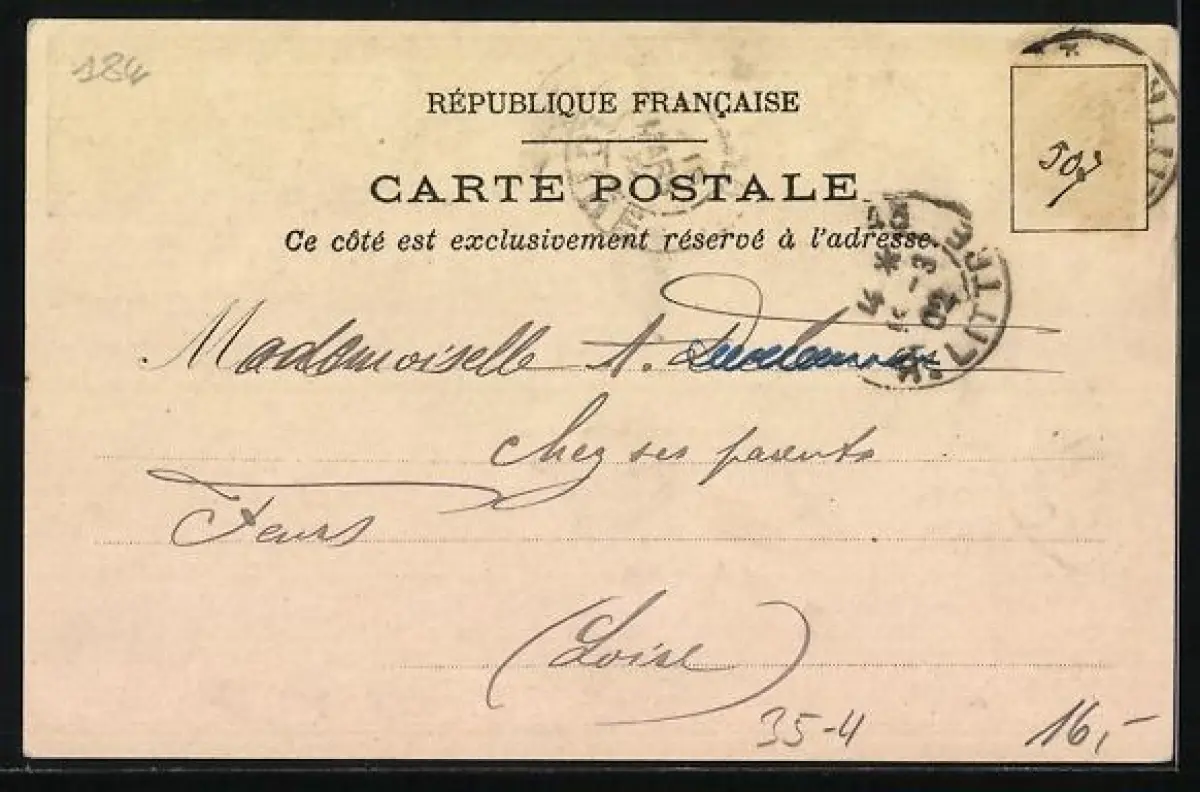 184
RÉPUBLIQUE FRANÇAISE
CARTE POSTALE
Ce côté est exclusivement réservé à l'adresse.
Mademoiselle A.
chez ses parents
Feurs
(Loire)
35-4
16,-